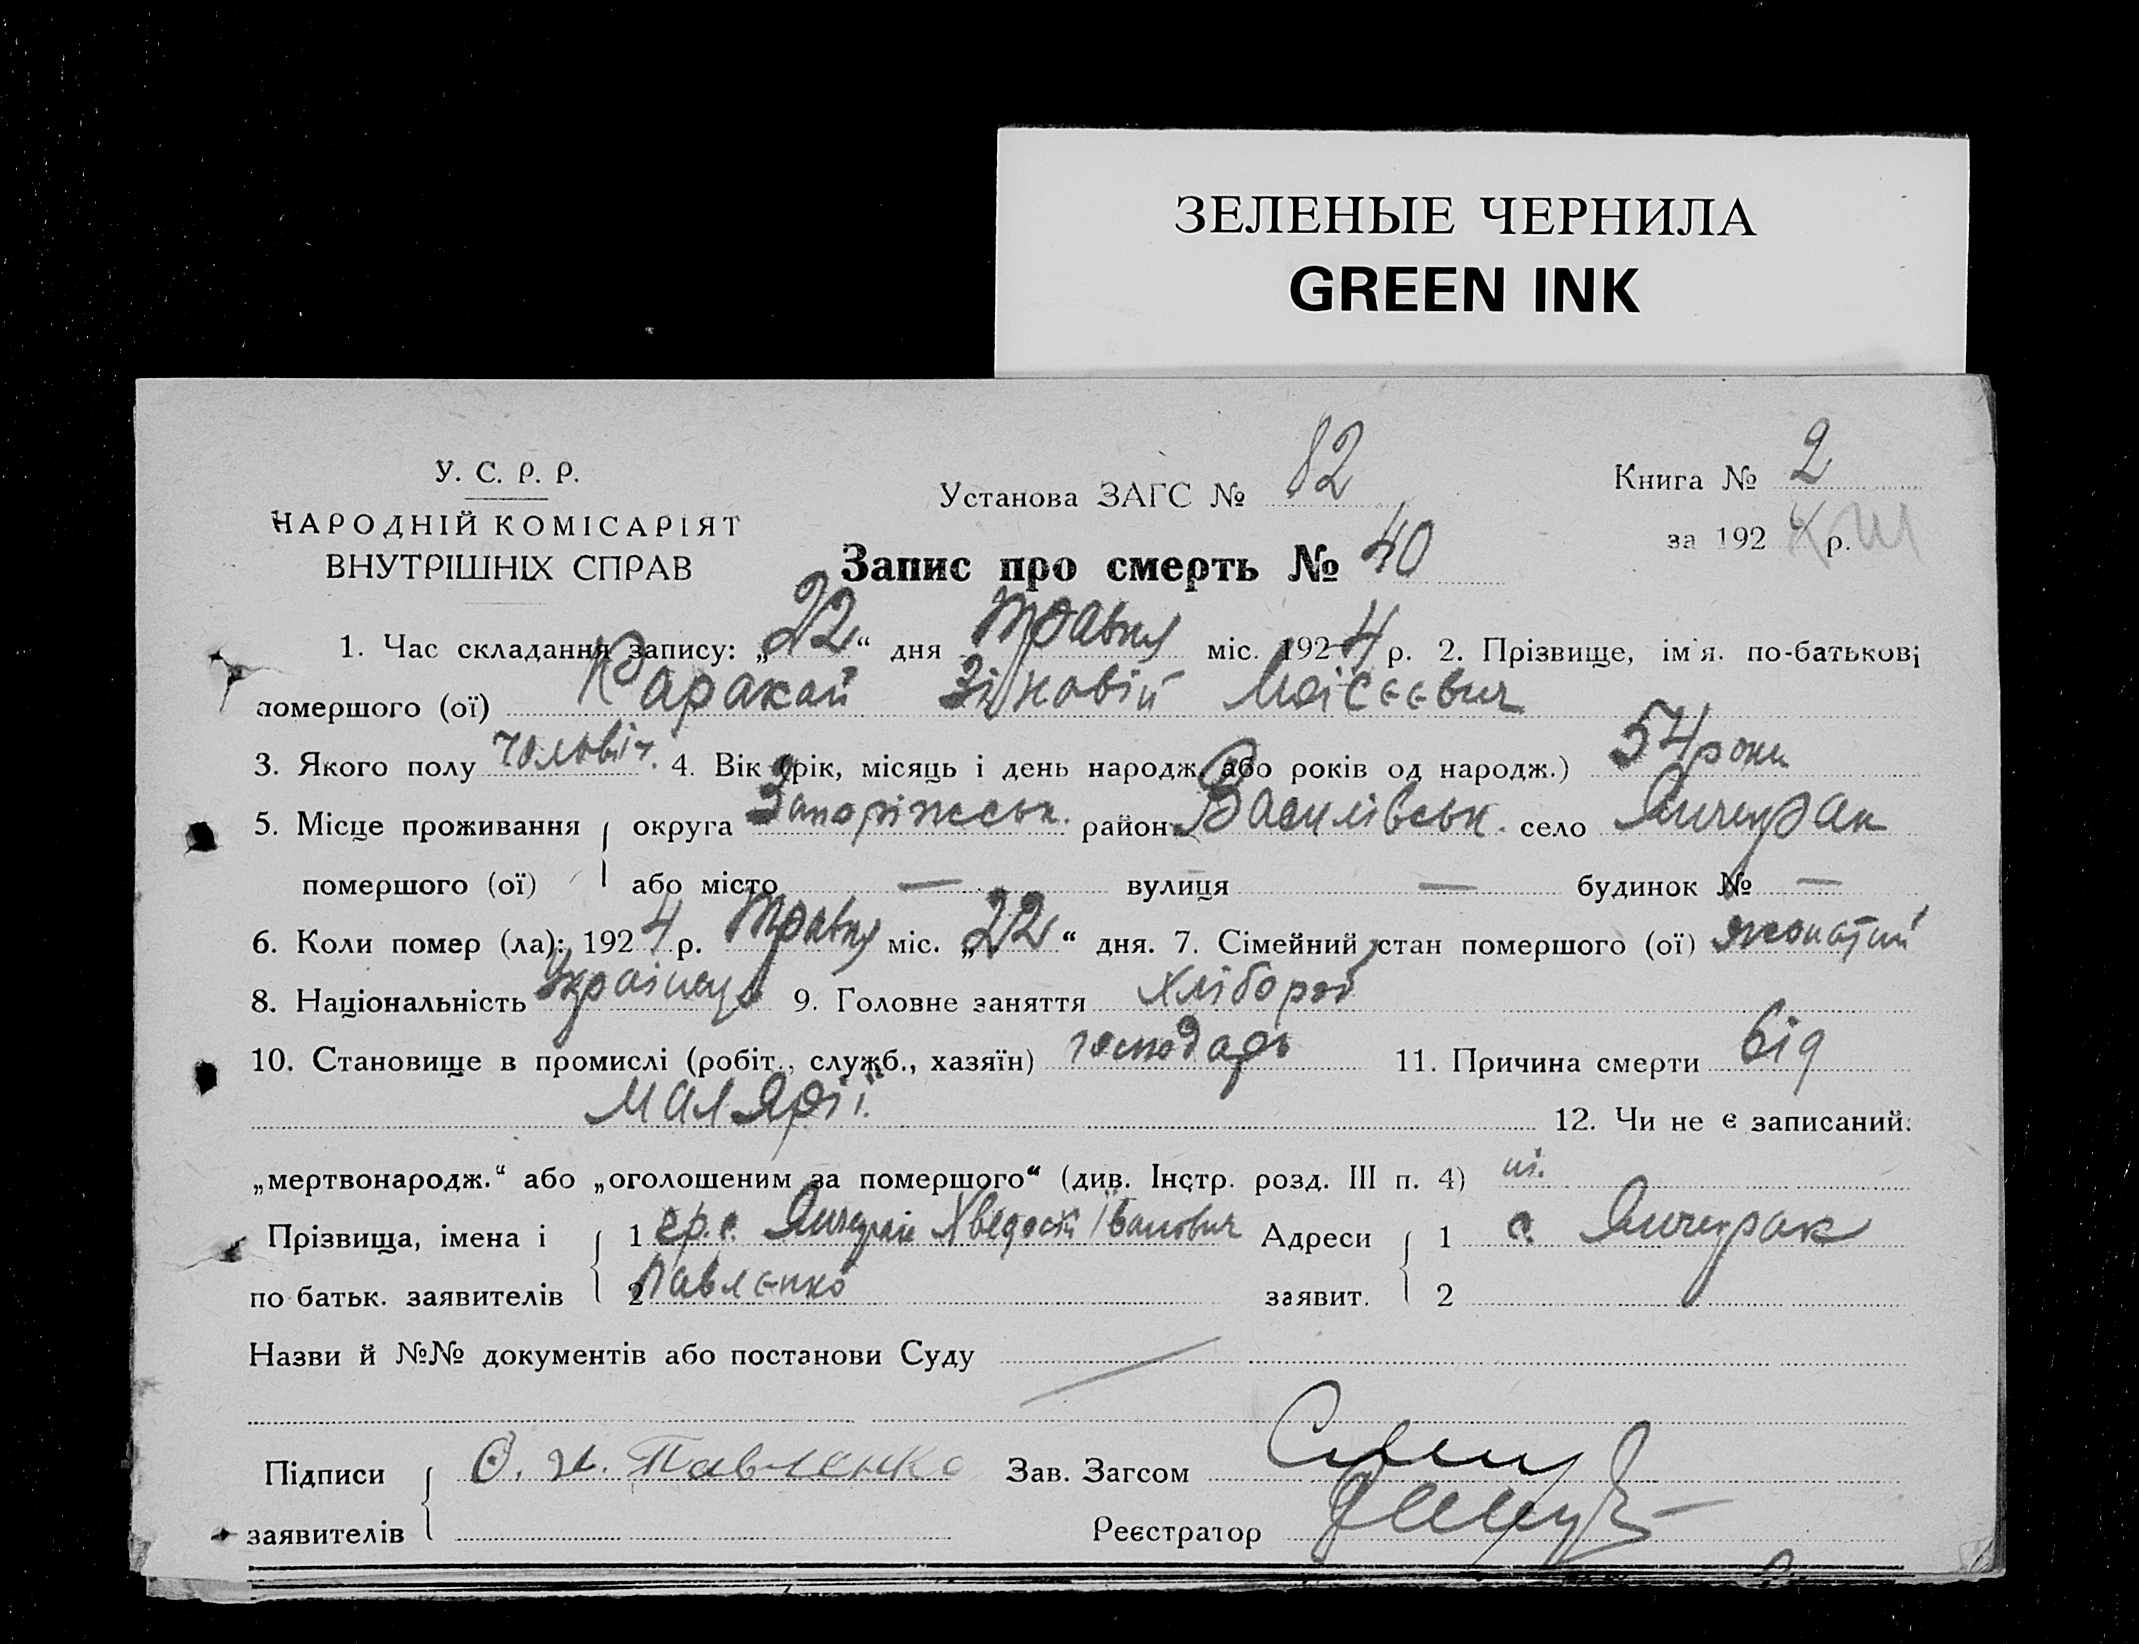 ЗЕЛЕНЫЕ ЧЕРНИЛА
GREEN INK
У. С. Р. Р.
НАРОДНІЙ КОМІСАРІЯТ
ВНУТРІШНІХ СПРАВ
Установа ЗАГС № 82
Книга № 2
за 192 4 р.
Запис про смерть № 40
1. Час складання запису: „22“ дня Травня міс. 1924 р. 2. Прізвище, ім'я. по-батькові
помершого (ої) Каракай Зіновій Мойсеєвич
3. Якого полу чоловіч. 4. Вік (рік, місяць і день народж. або років од народж.) 54 роки
5. Місце проживання округа Запоріжськ. район Василівськ. село Янчекрак
помершого (ої) або місто — вулиця — будинок № —
6. Коли помер (ла): 1924 р. Травня міс. „22“ дня. 7. Сімейний стан помершого (ої) жонатий
8. Національність Українець 9. Головне заняття Хлібороб
10. Становище в промислі (робіт., служб., хазяїн) господарь 11. Причина смерти від
малярії. 12. Чи не є записаний:
„мертвонародж.“ або „оголошеним за помершого“ (див. Інстр. розд. III п. 4) ні.
Прізвища, імена і 1 гр. с. Янчекрак Хведосій Іванович Адреси 1 с. Янчекрак
по батьк. заявителів 2 Павленко заявит. 2
Назви й №№ документів або постанови Суду
Підписи Ѳ. И. Павленко Зав. Загсом
заявителів Реєстратор